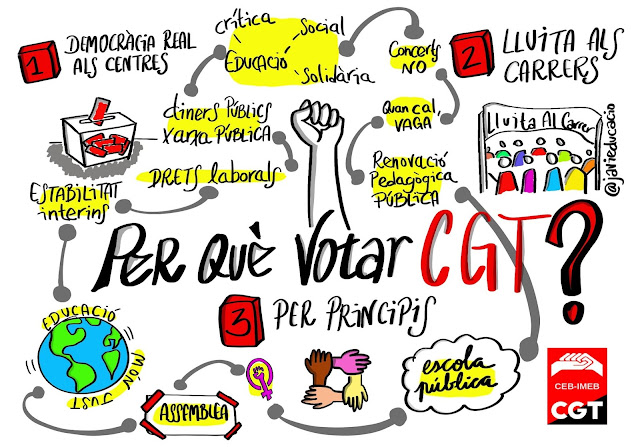 1
DEMOCRÀCIA REAL
ALS CENTRES
crítica
Social
EDUCACIÓ
Solidària
Concerts
NO
2
LLUITA ALS
CARRERS
diners PÚBLICS
XARXA PÚBLICA
Quan cal,
VAGA
Lluita Al Carrer
@javieducacio
DRETS laborals
ESTABILITAT
interins
Renovació
Pedagògica
PÚBLICA
PER QUÈ Votar CGT?
3
PER PRINCIPIS
EDUCACIÓ
MÓN
JUST
ASSEMBLEA
escola
pública
CEB-IMEB
CGT